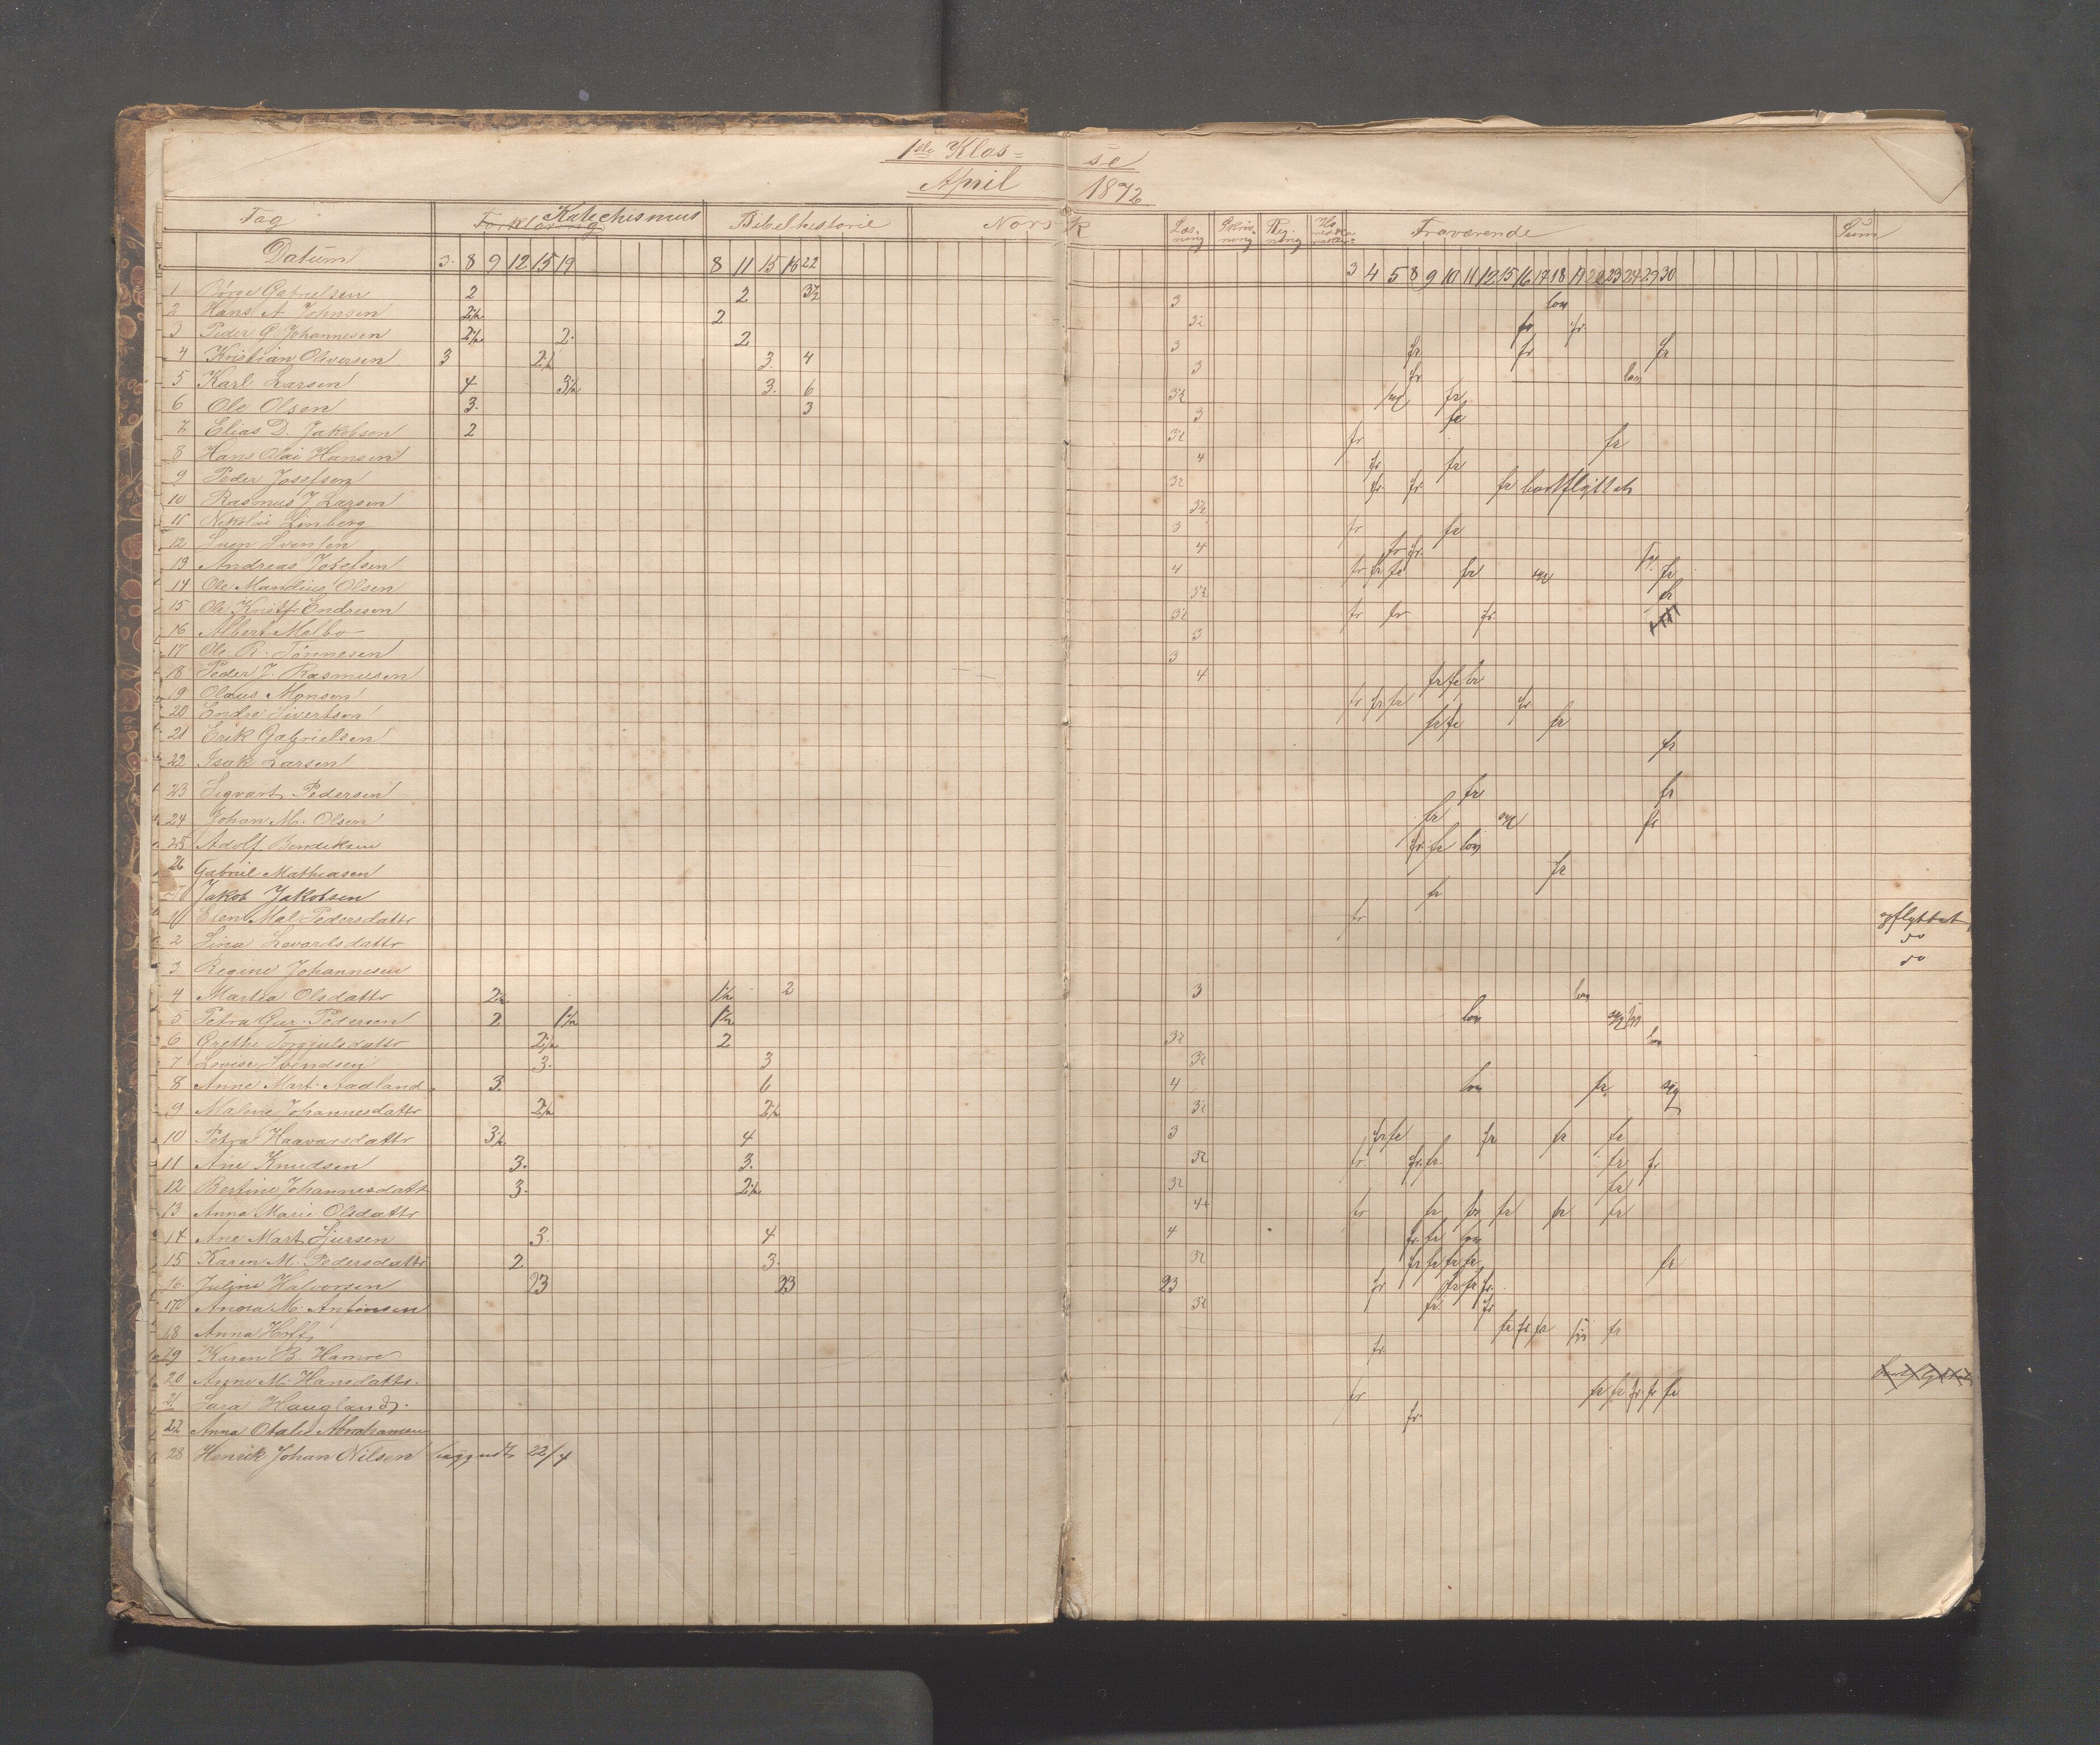 1ste Klas= se
April 1872
Fag Forklaring Katechismus Bibelhistorie Nors k Læs-ning Skriv-ning Reg-ning Fraværende Sum
Datum 3. 8 9 12 15 19 8 11 15 16 22 3 4 5 8 9 10 11 12 15 16 17 18 19 22 23 24 29 30
1 Børge Gabrielsen 2 2 3½ 3
2 Hans A Johnsen 2½ 2 3½ fr fr.
3 Peder G Johannesen 2½ 2. 2 3 fr fr fr
4 Kristian Oliversen 3 2½ 3. 4 3 fr
5 Karl Larsen 4 3½ 3. 6 3½ fr
6 Ole Olsen 3. 3 3 fr
7 Elias D. Jakobsen 2 3½ fr fr
8 Hans Olai Hansen 4 fr fr
9 Peder Josefsen 3½ fr. fr. fr bortflyttet
10 Rasmus J Larsen 3½
11 Nikolai Linberg 3 fr fr
12 Sven Svensen 4 fr fr.
13 Andreas Josefsen 4 fr fr fr fr fr
14 Ole Mandius Olsen 3½ fr
15 Ole Kristfr Endresen 3½ fr fr fr.
16 Albert Melbo 3
17 Ole R. Tönnesen 3
18 Peder J. Rasmusen 4 fr fr fr
19 Olaus Monsen fr fr fr fr
20 Endre Sivertsen fr fr fr
21 Erik Gabrielsen fr
22 Isak Larsen
23 Sigvart Pedersen fr fr
24 Johan M. Olsen fr fr
25 Adolf Bendiksen fr. fr
26 Gabriel Mathiasen fr
27 Jakob Jakobsen fr
1 Mal. Pedersdattr fr opflyttet
2 Sina Levardsdattr do
3 Regine Johannesen do
4 Martha Olsdattr 2½ 1½ 2 3
5 Petra Gur. Pedersen 2 1½ 1½
6 Grethe Torgjulsdattr 2½ 2 3½
7 Lovise Svendsen 3. 3 3½
8 Anne Mart. Aadland 3. 6 4 fr
9 Maline Johannesdattr 2½ 2½ 3½
10 Petra Haavarsdattr 3½ 4 3 fr fr fr fr fr
11 Ane Knudsen 3. 3. 3½ fr. fr. fr. fr fr
12 Bertine Johannesdatt 3. 2½ 3½ fr
13 Anna Marie Olsdattr 4 fr fr fr fr fr fr
14 Ane Mart. Sjursen 3. 4 4 fr. fr
15 Karen M. Pedersdattr 2 3. 3½ fr fr fr fr fr
16. Juline Halvorsen 23 23 23 fr fr fr fr.
17 Anna M. Anfinsen 3½ fr. fr
18 Anna Hoff fr fr fr fr
19 Karen B. Hamre fr.
20 Anne M. Hansdattr.
21 Sara Haugland. fr fr fr fr. fr fr
22 Anna Otalie Abrahamsen fr.
28 Henrik Johan Nilsen 22/4